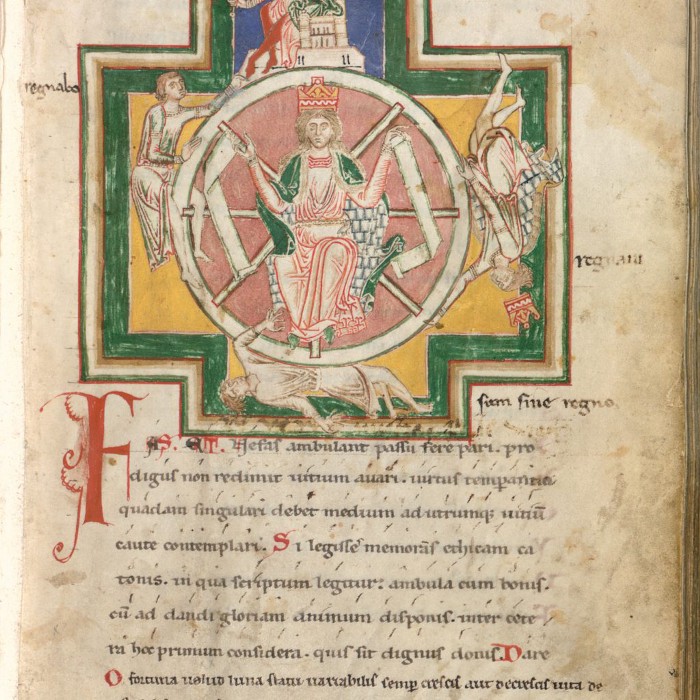 regnabo
regnaui
sum sine regno
FAS. ET. Nefas ambulant passu fere pari. pro
digus non redimit uitium auari. uirtus temperantia
quadam singulari debet medium ad utrumq; uitiũ
caute contemplari. Si legisse memoras ethicam ca
tonis. in qua scriptum legitur: ambula cum bonis.
cũ ad dandi gloriam animum disponis. inter cete
ra hoc primum considera. quis sit dignus donis. Dare
O fortuna uelud luna statu uariabilis semp crescis aut decrescis uita de